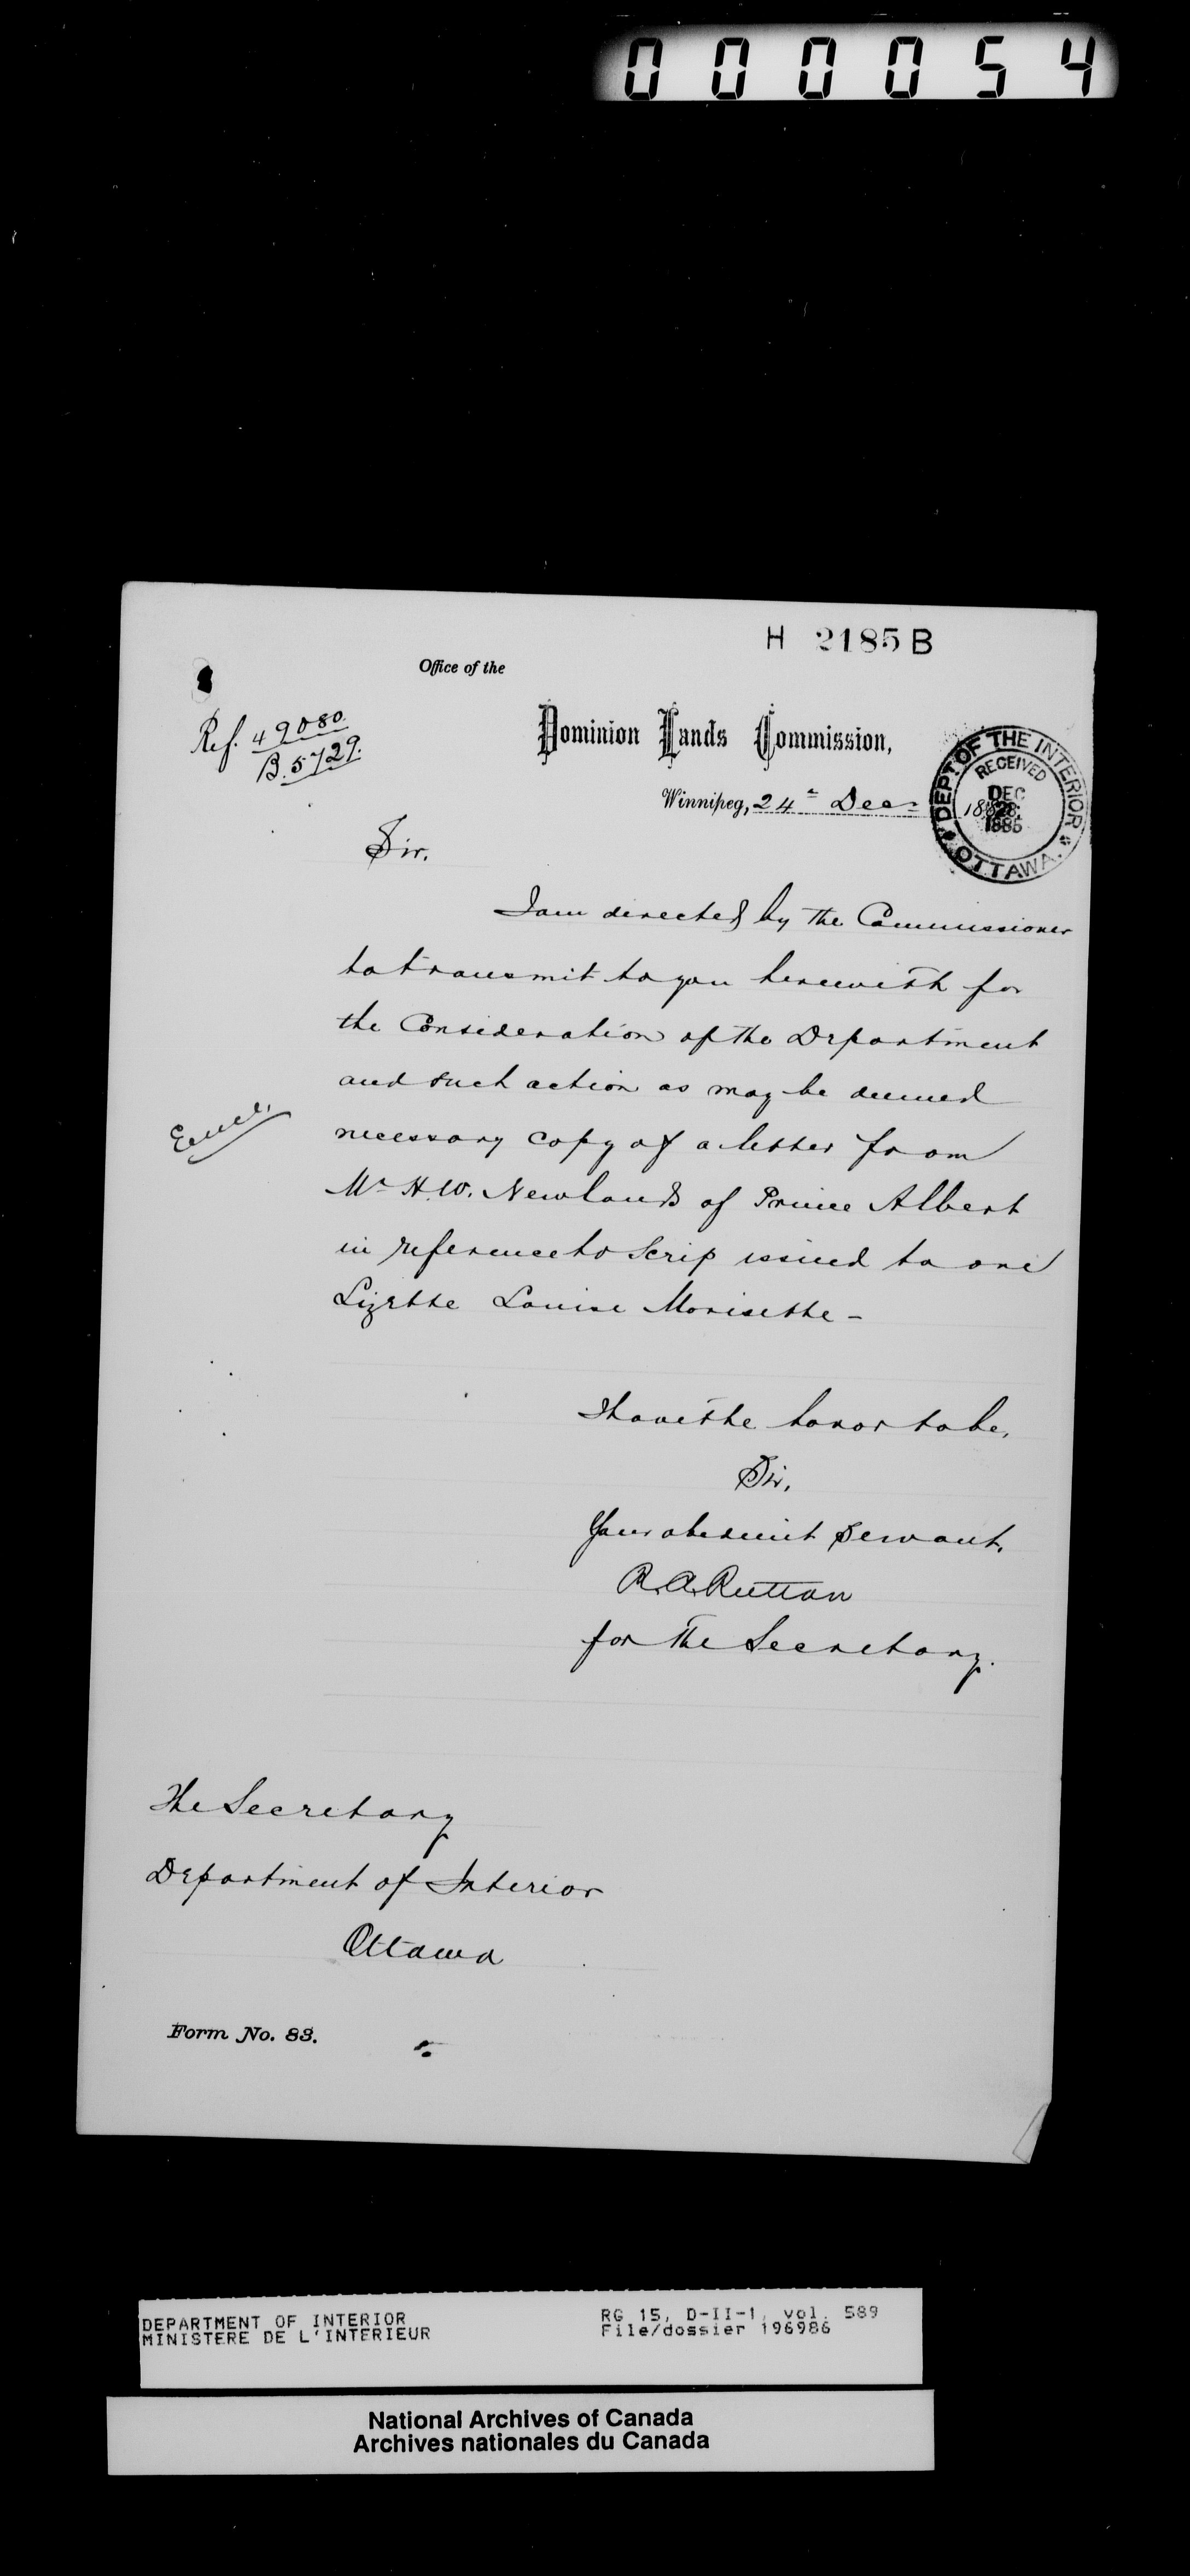 000054
H 2185 B
Office of the
Ref. 49080
B.5729.
Dominion Lands Commission,
Winnipeg, 24th Dec: 188
DEPT OF THE INTERIOR
RECEIVED
DEC
28
1885
OTTAWA.
Sir,
I am directed by the Commissioner
to transmit to you herewith for
the Consideration of the Department
and such action as may be deemed
Encl.
necessary copy of a letter from
Mr H.W. Newlands of Prince Albert
in reference to Scrip issued to one
Lizette Louise Morisette -
I have the honor to be,
Sir,
Your obedient Servant,
R.A. Ruttan
for the Secretary.
The Secretary
Department of Interior
Ottawa
Form No. 83.
DEPARTMENT OF INTERIOR
MINISTERE DE L'INTERIEUR
RG 15, D-II-1, vol. 589
File/dossier 196986
National Archives of Canada
Archives nationales du Canada